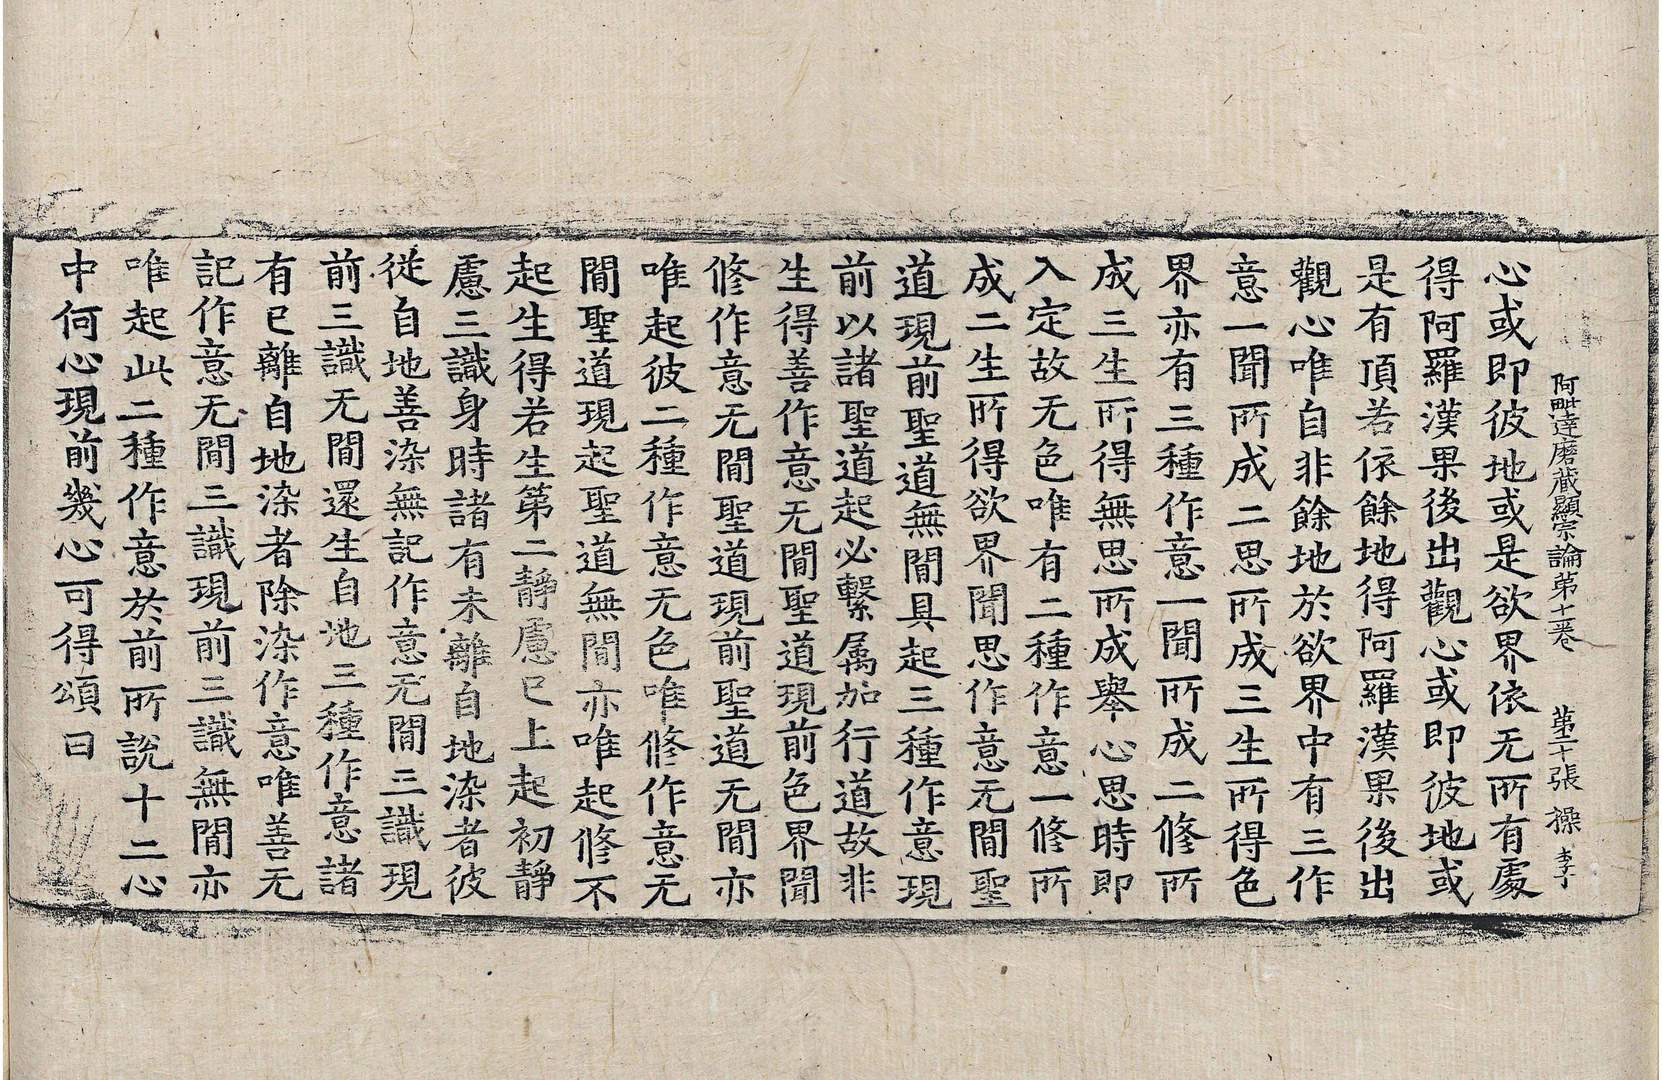 阿毗達磨藏顯宗論第十一卷 第二十張 操 李
心或即彼地或是欲界依无所有處
得阿羅漢果後出觀心或即彼地或
是有頂若依餘地得阿羅漢果後出
觀心唯自非餘地於欲界中有三作
意一聞所成二思所成三生所得色
界亦有三種作意一聞所成二修所
成三生所得無思所成舉心思時即
入定故无色唯有二種作意一修所
成二生所得欲界聞思作意无間聖
道現前聖道無間具起三種作意現
前以諸聖道起必繫属加行道故非
生得善作意无間聖道現前色界聞
修作意无間聖道現前聖道无間亦
唯起彼二種作意无色唯修作意无
間聖道現起聖道無間亦唯起修不
起生得若生第二靜慮已上起初靜
慮三識身時諸有未離自地染者彼
從自地善染無記作意无間三識現
前三識无間還生自地三種作意諸
有已離自地染者除染作意唯善无
記作意无間三識現前三識無間亦
唯起此二種作意於前所說十二心
中何心現前幾心可得頌曰